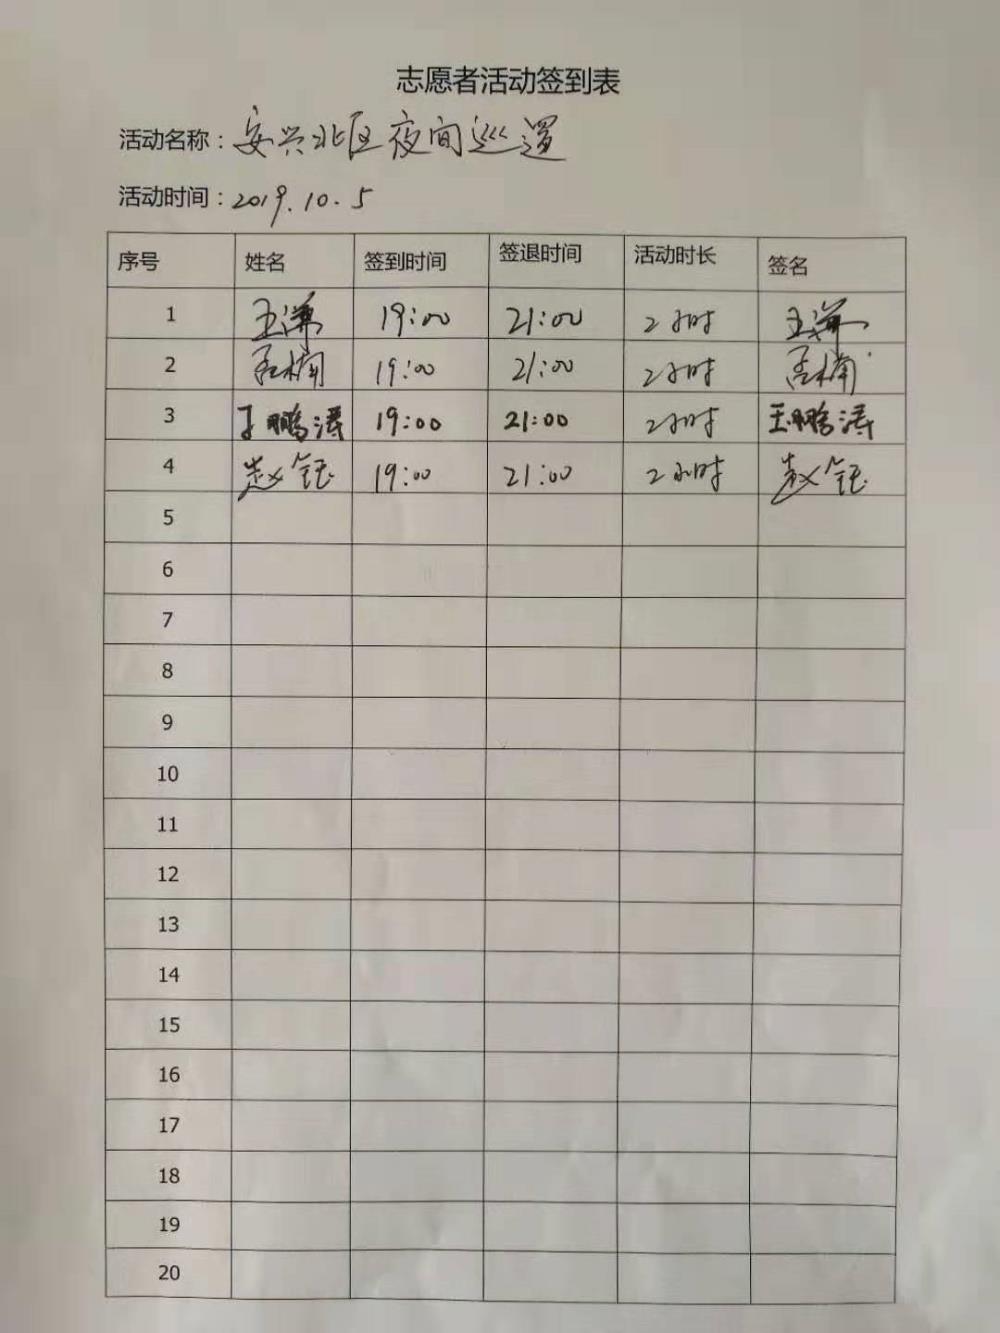 志愿者活动签到表
活动名称：安兴北区夜间巡逻
活动时间：2019.10.5
序号 姓名 签到时间 签退时间 活动时长 签名
1 19:00 21:00 2小时
2 19:00 21:00 2小时
3 王鹏涛 19:00 21:00 2小时 王鹏涛
4 赵钰 19:00 21:00 2小时 赵钰
5
6
7
8
9
10
11
12
13
14
15
16
17
18
19
20